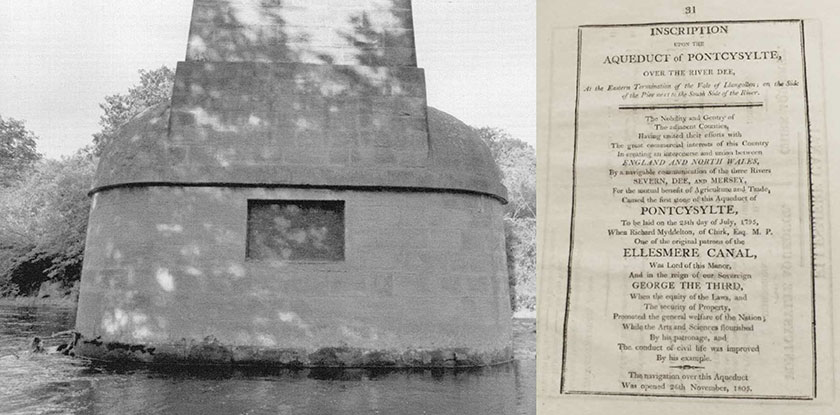 31
INSCRIPTION
UPON THE
AQUEDUCT OF PONTCYSYLTE,
OVER THE RIVER DEE,
At the Eastern Termination of the Vale of Llangollen; on the Side
of the Pier next to the South Side of the River.
The Nobility and Gentry of
The adjacent Counties,
Having united their efforts with
The great commercial interests of this Country
In creating an intercourse and union between
ENGLAND AND NORTH WALES,
By a navigable communication of the three Rivers
SEVERN, DEE, AND MERSEY,
For the mutual benefit of Agriculture and Trade,
Caused the first stone of this Aqueduct of
PONTCYSYLTE,
To be laid on the 25th day of July, 1795,
When Richard Myddelton, of Chirk, Esq. M. P.
One of the original patrons of the
ELLESMERE CANAL,
Was Lord of this Manor,
And in the reign of our Sovereign
GEORGE THE THIRD,
When the equity of the Laws, and
The security of Property,
Promoted the general welfare of the Nation;
While the Arts and Sciences flourished
By his patronage, and
The conduct of civil life was improved
By his example.
The navigation over this Aqueduct
Was opened 26th November, 1805.